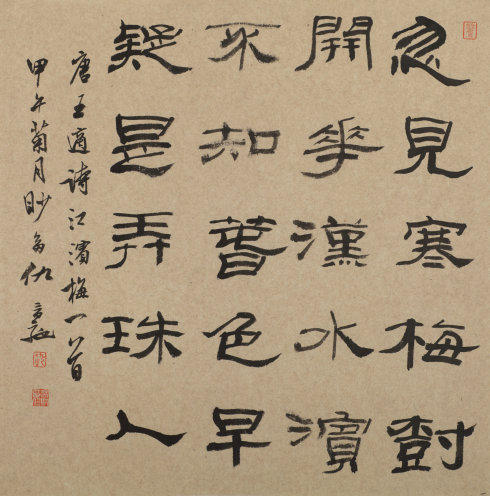 忽見寒梅樹
開花漢水濱
不知春色早
疑是弄珠人
唐王適詩江濱梅一首
甲午菊月